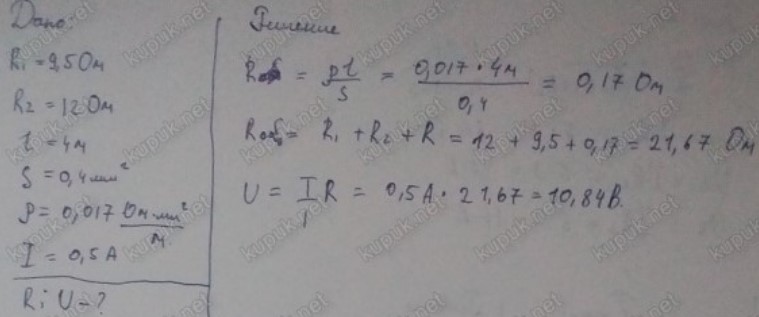 Дано:
R₁ = 9,5 Ом
R₂ = 12 Ом
l = 4м
S = 0,4 мм²
ρ = 0,017 Ом·мм²/м
I = 0,5 А
R; U - ?
Решение
R = ρl/S = 0,017 · 4м/0,4 = 0,17 Ом
Rоб = R₁ + R₂ + R = 12 + 9,5 + 0,17 = 21,67 Ом
U = I R = 0,5А · 21,67 = 10,84В.
kupuk.net